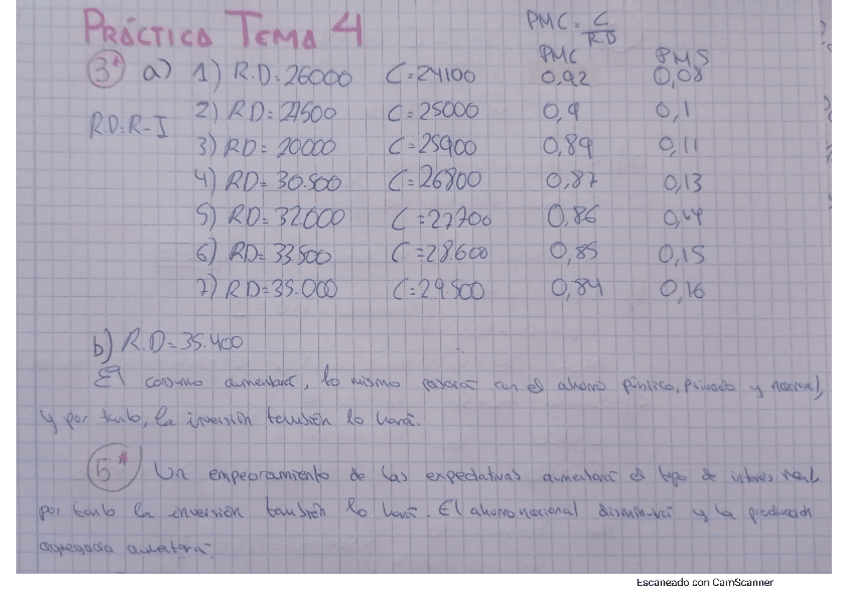 PRÁCTICA TEMA 4
PMC = C/RD
3* a) 1) R.D = 26000 C = 24100 PMC 0,92 PMS 0,08
RD = R-I 2) RD = 27500 C = 25000 0,9 0,1
3) RD = 20000 C = 25900 0,89 0,11
4) RD = 30.500 C = 26800 0,87 0,13
5) RD = 32.000 C = 27700 0,86 0,14
6) RD = 33500 C = 28.600 0,85 0,15
7) RD = 35.000 C = 29.500 0,84 0,16
b) R.D = 35.400
El consumo aumentará, lo mismo pasará con el ahorro público, privado y nacional,
y por tanto, la inversión también lo hará.
5* Un empeoramiento de las expectativas aumentará el tipo de interés real
por tanto la inversión también lo hará. El ahorro nacional disminuirá y la producción
agregada
Escaneado con CamScanner